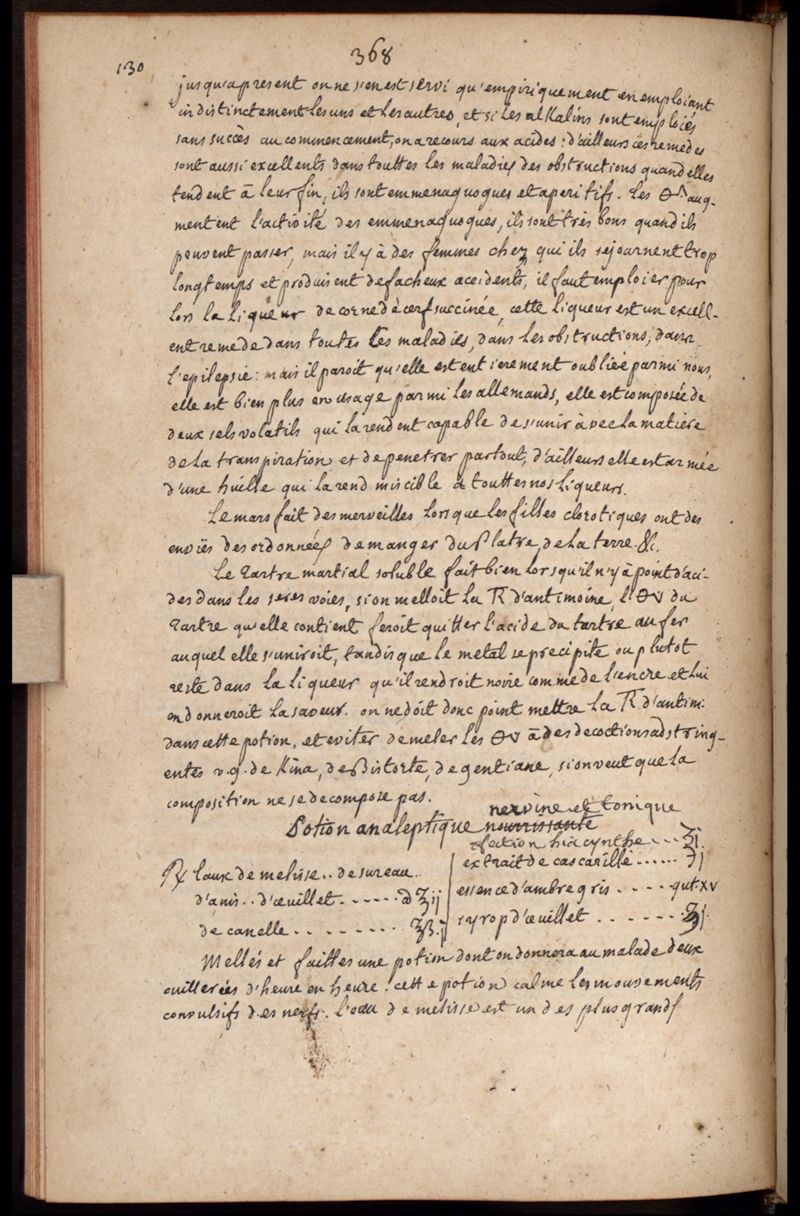 368
130
jusqu'apresent on ne s'en est servi qu'empiriquement en emploiant
indistinctement les uns et les autres, et si les alkalins sont emploiés
sans succès au commencement, on a recours aux acides : d'ailleurs ces remedes
sont aussi excellents dans touttes les maladies des obstructions quand elles
tendent à leur fin, ils sont emmenagogues et aperitifs. Les aug-
mentent l'activité des emmenaguogues, ils sont très bons quand ils
peuvent passer, mais il y à des femmes chez qui ils sejournent trop
longtemps et produisent de facheux accidents, il faut emploier pour
lors la liqueur de corne de cerf succinée, cette liqueur est un excell-
ent remede dans toutes les maladies, dans les obstructions, dans
l'epilepsie : mais il paroit qu'elle est entierement oubliée parmi nous,
elle est bien plus en usage parmi les allemands, elle est composée de
deux sels volatils qui la rendent capable de s'unir avec la matiere
de la transpiration et de penetrer partout, d'ailleurs elle est armée
d'une huille qui la rend miscible à touttes nos liqueurs.
Le mars fait des merveilles lorsque les filles clorotiques ont des
envies desordonnées de manger du platre, de la terre &c.
Le tartre martial soluble fait bien lorsqu'il n'y à point d'aci-
des dans les 1eres voies, si on melloit la d'antimoine, l' du
tartre qu'elle contient feroit quitter l'acide du tartre au fer
auquel elle s'uniroit, tandis que le metal se precipite ou plutot
reste dans la liqueur qu'il rendroit noire comme de l'encre et lui
en donneroit la saveur. on ne doit donc point mettre la d'antim:
dans cette potion, et eviter de meler les à des decoctions adstring-
entes v.g. de Kina, de Bistorte, de gentiane, si on veut que la
composition ne se decompose pas.
nervine et tonique
Potion analeptique nourrissante
℞ l'aux de melisse .. de sureau ..
d'anis .. d'œuillet - - - - - ʒij
de canelle - - - - - - - -
fection hiacynthe - - - ʒj.
extrait de cascarille ...... ʒj
essence d'ambre gris - - - - gut. xv
syrop d'œuillet - - - - - - ℥j.
Mellés et faittes une potion dont on donnera au malade deux
cuillerées d'heure en heure. cette potion calme les mouvements
convulsifs des nerfs. l'eau de melisse est un des plus grands